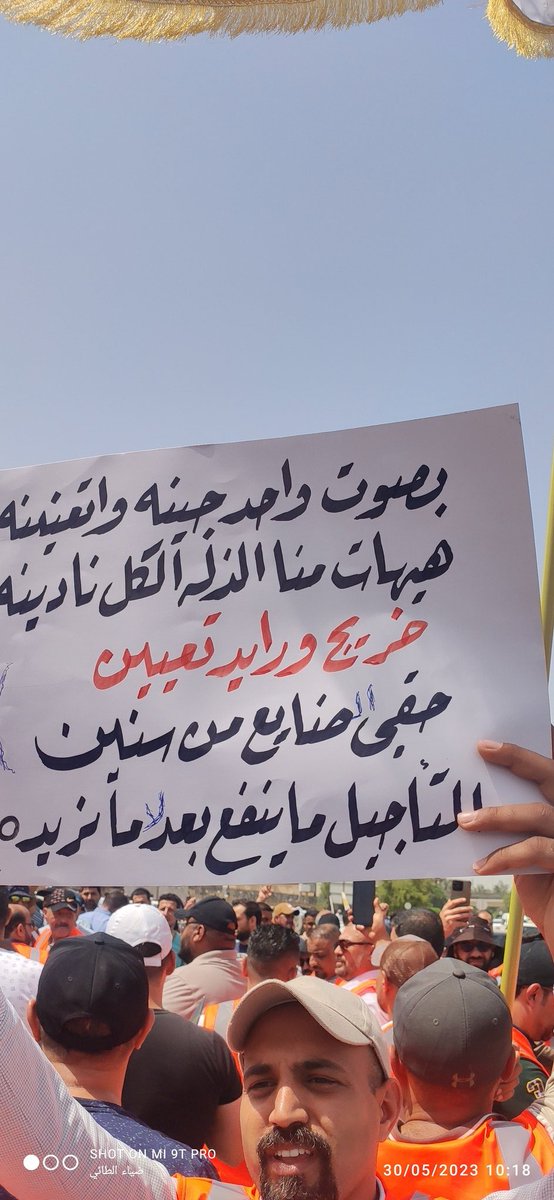 بصوت واحد جينه واتعنينه
هيهات منا الذله الكل نادينه
خريج ورايد تعيين
حقي الضايع من سنين
التأجيل ماينفع بعد ما نريده
SHOT ON MI 9T PRO
ضياء الطائي
30/05/2023 10:18